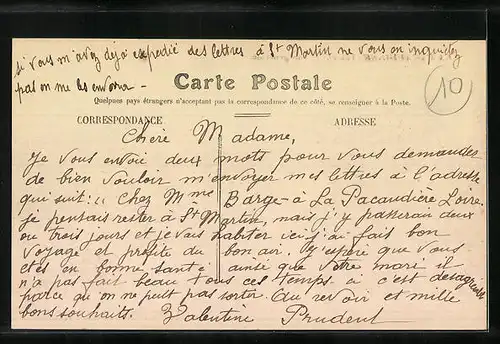 si vous m'avez déjà expedié des lettres à St Martin ne vous en inquietez
pas on me les enverra -
10
Carte Postale
Quelques pays étrangers n'acceptant pas la correspondance de ce côté, se renseigner à la Poste.
CORRESPONDANCE ADRESSE
Chère Madame,
Je vous envoi deux mots pour vous demander
de bien vouloir m'envoyer mes lettres à l'adresse
qui suit: " Chez Mme Barge à La Pacaudière Loire.
je pensais rester à St Martin, mais j'y passerai deux
ou trois jours et je vais habiter ici, j'ai fait bon
voyage et profite du bon air. J'espère que vous
etes en bonne santé ainsi que votre mari il
n'a pas fait beau tous ces temps à c'est desagréable
parce qu'on ne peut pas sortir. Au revoir et mille
bons souhaits. Valentine Prudent